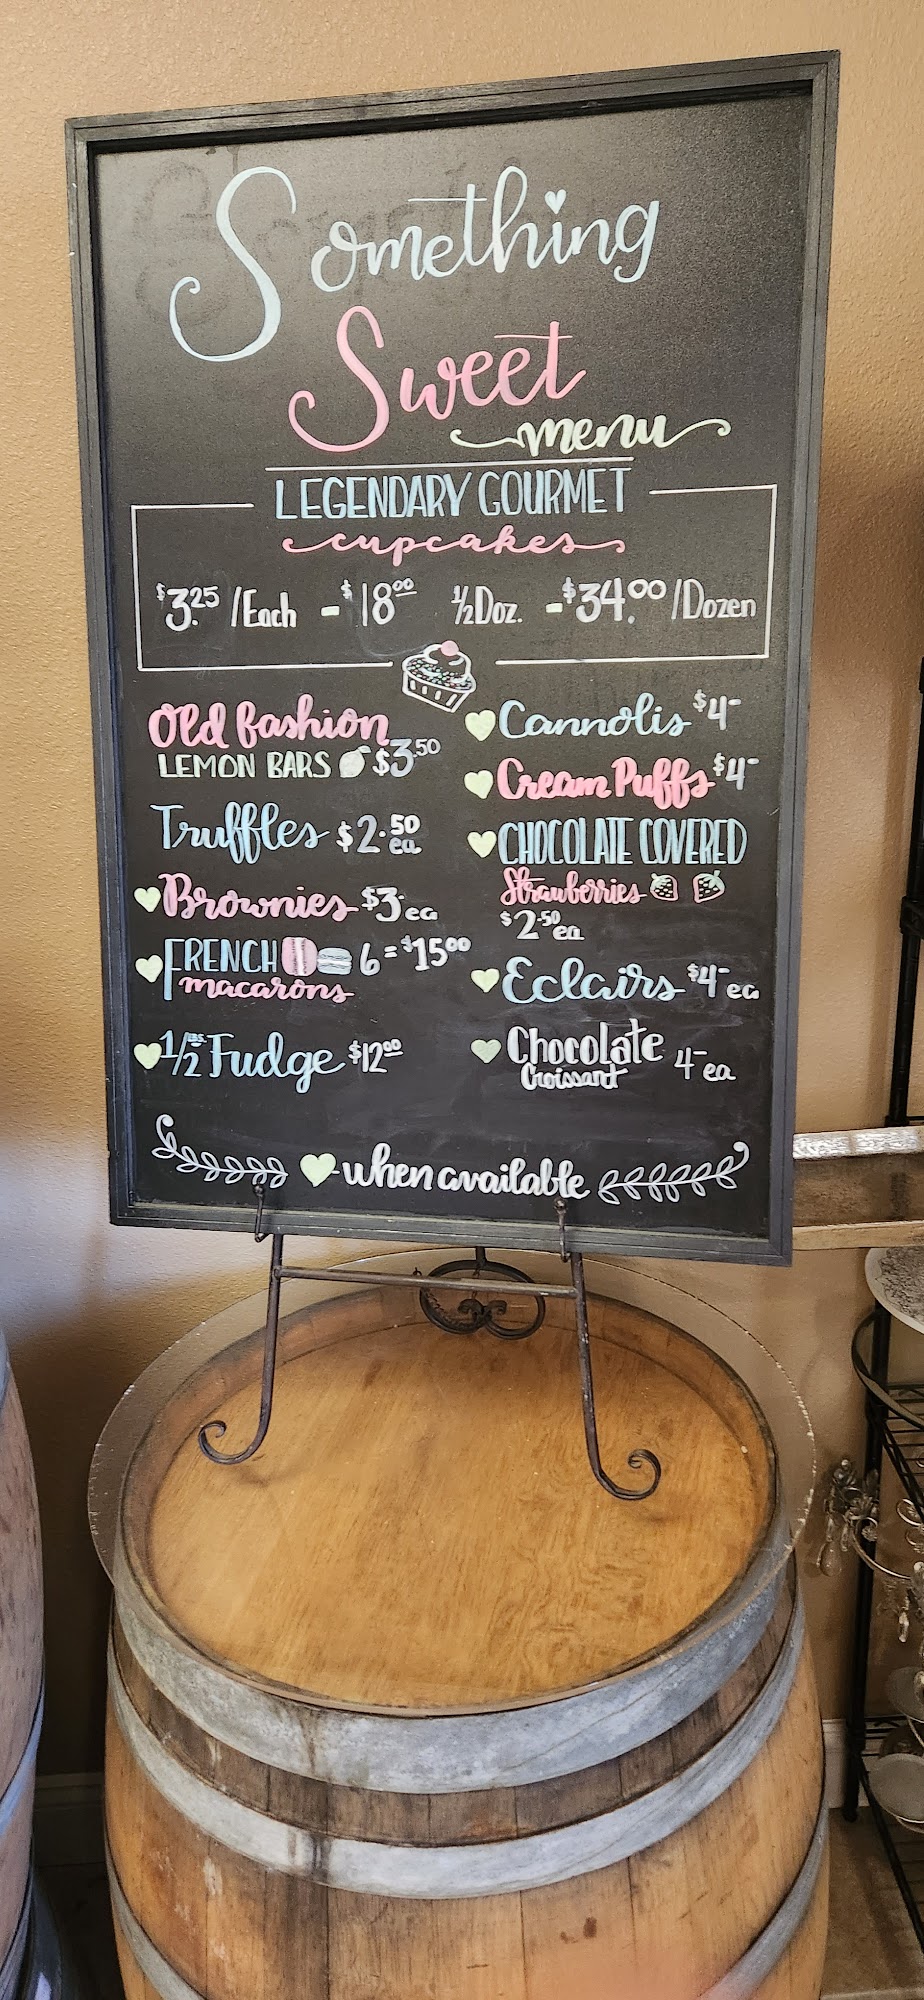 Something
Sweet
menu
LEGENDARY GOURMET
cupcakes
$3.25 /Each - $18.00 1/2 Doz. - $34.00 /Dozen
Old fashion
LEMON BARS $3.50
Truffles $2.50 ea.
Brownies $3 ea
FRENCH 6 = $15.00
macarons
1/2 LBS. Fudge $12.00
Cannolis $4-
Cream Puffs $4-
CHOCOLATE COVERED
Strawberries
$2.50 ea
Eclairs $4- ea
Chocolate 4- ea
Croissant
when available